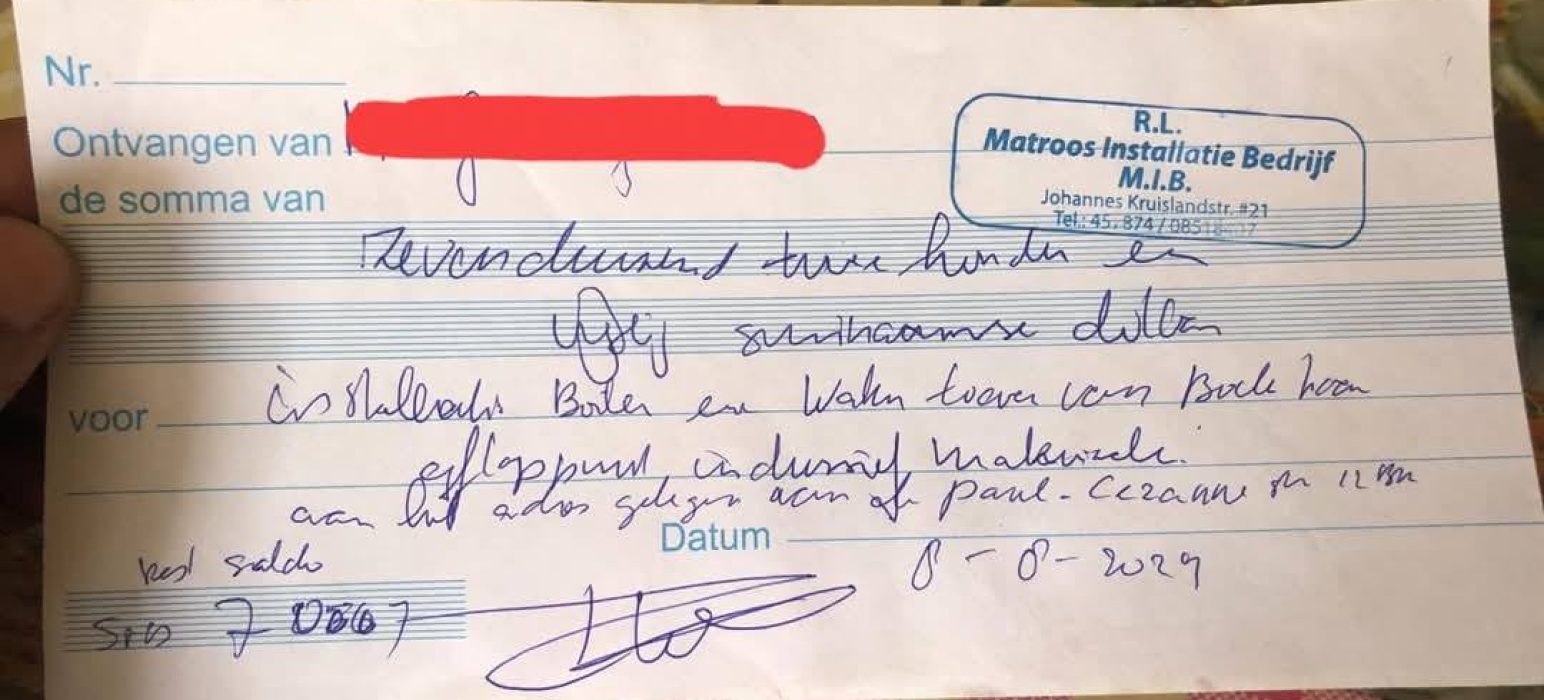 Nr.
Ontvangen van
de somma van
R.L.
Matroos Installatie Bedrijf
M.I.B.
Johannes Kruislandstr. #21
Tel.: 45. 874 / 0851
Zevenduizend twee honder en
surinaamse dollar
voor installatie Boiler en van
inclusief materiaal.
aan het adres gelegen aan de Paul-Cezanne
Datum
8-8-2024
rest saldo
SRD 7